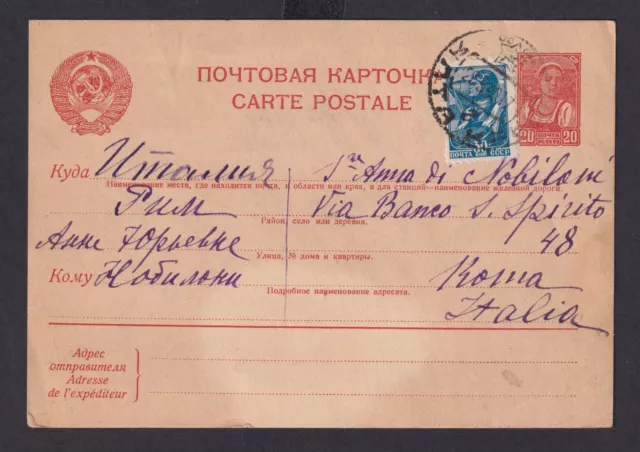 ПОЧТОВАЯ КАРТОЧКА
CARTE POSTALE
30
ПОЧТА СССР
ПОЧТА
20 СССР 20
Куда Италия
Наименование места, где находится почта, и области или края, а для станций—наименование железной дороги.
Рим
Район, село или деревня.
Анне Юрьевне
Улица, № дома и квартиры.
Кому Нобилони
Подробное наименование адресата.
Sra Anna di Nobiloni
Via Banco S. Spirito
48
Roma
Italia
Адрес
отправителя
Adresse
de l'expéditeur